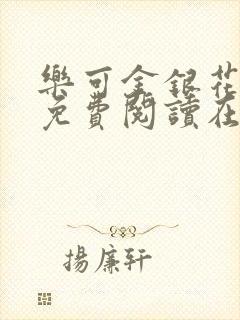 樂可金銀花
免費閱讀在
揚廉軒